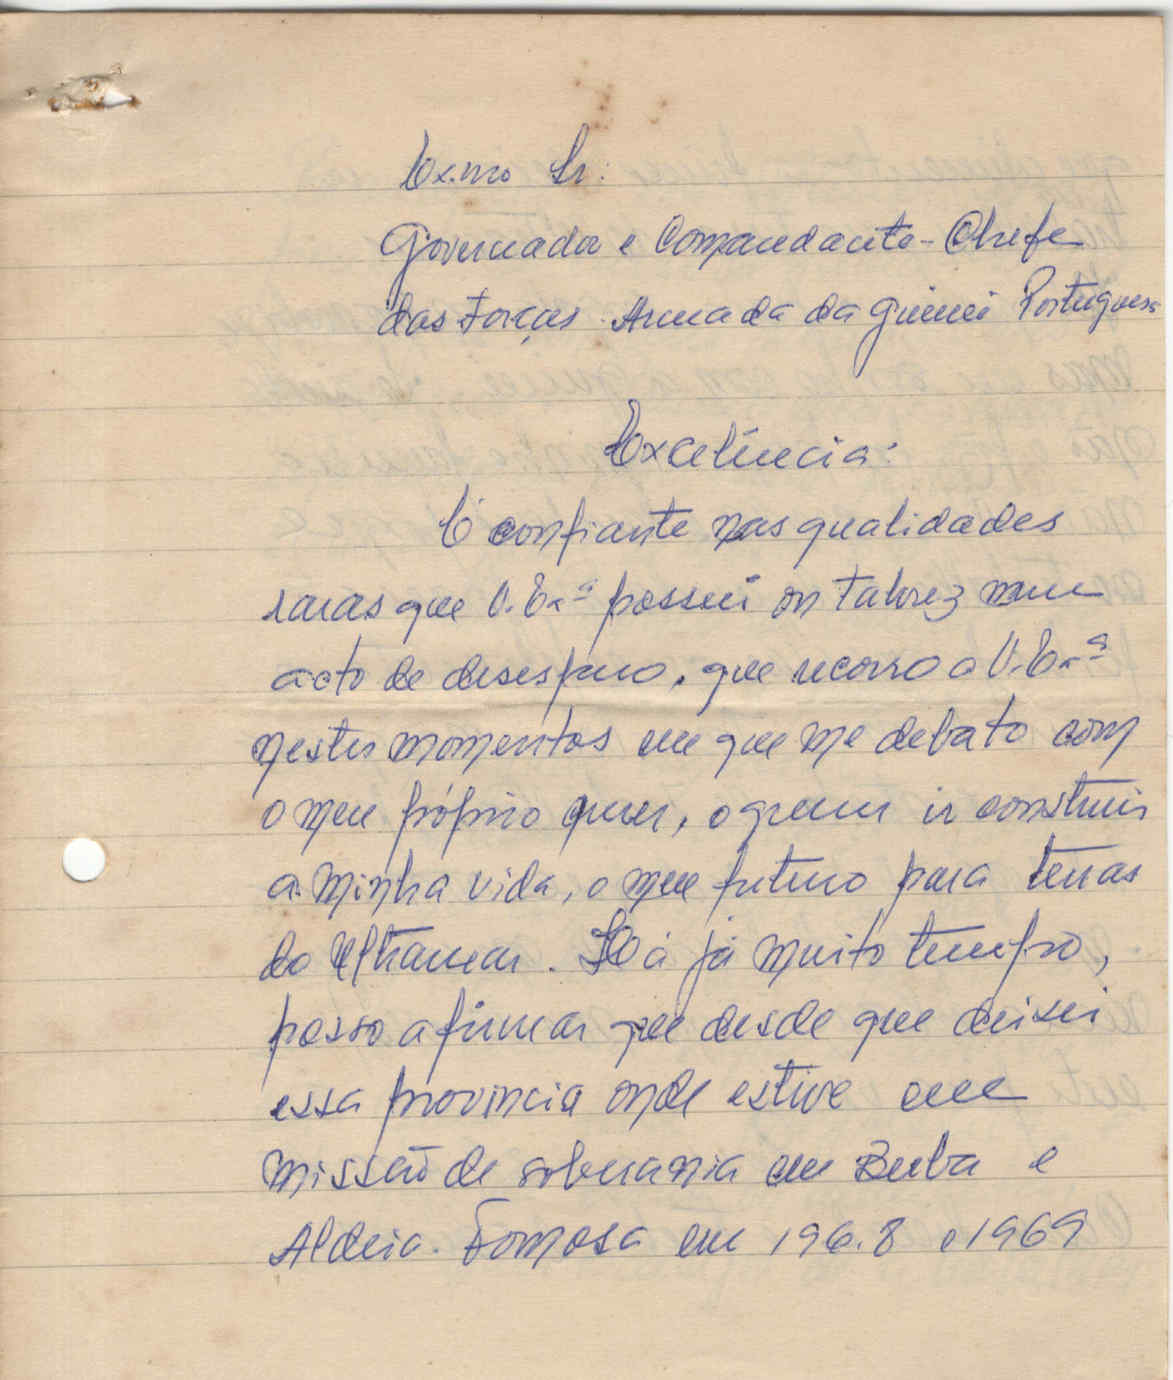 Ex.mo Sr:
Governador e Comandante-Chefe
das Forças Armada da Guiné Portuguesa
Excelência:
É confiante nas qualidades
raras que V. Exª possui ou talvez num
acto de desespero, que recorro a V. Exª
nestes momentos em que me debato com
o meu próprio querer, o querer ir construir
a minha vida, o meu futuro para terras
do Ultramar. Há já muito tempo,
posso afirmar que desde que deixei
essa provincia onde estive em
missão de soberania em Buba e
Aldeia Formosa em 1968 e 1969